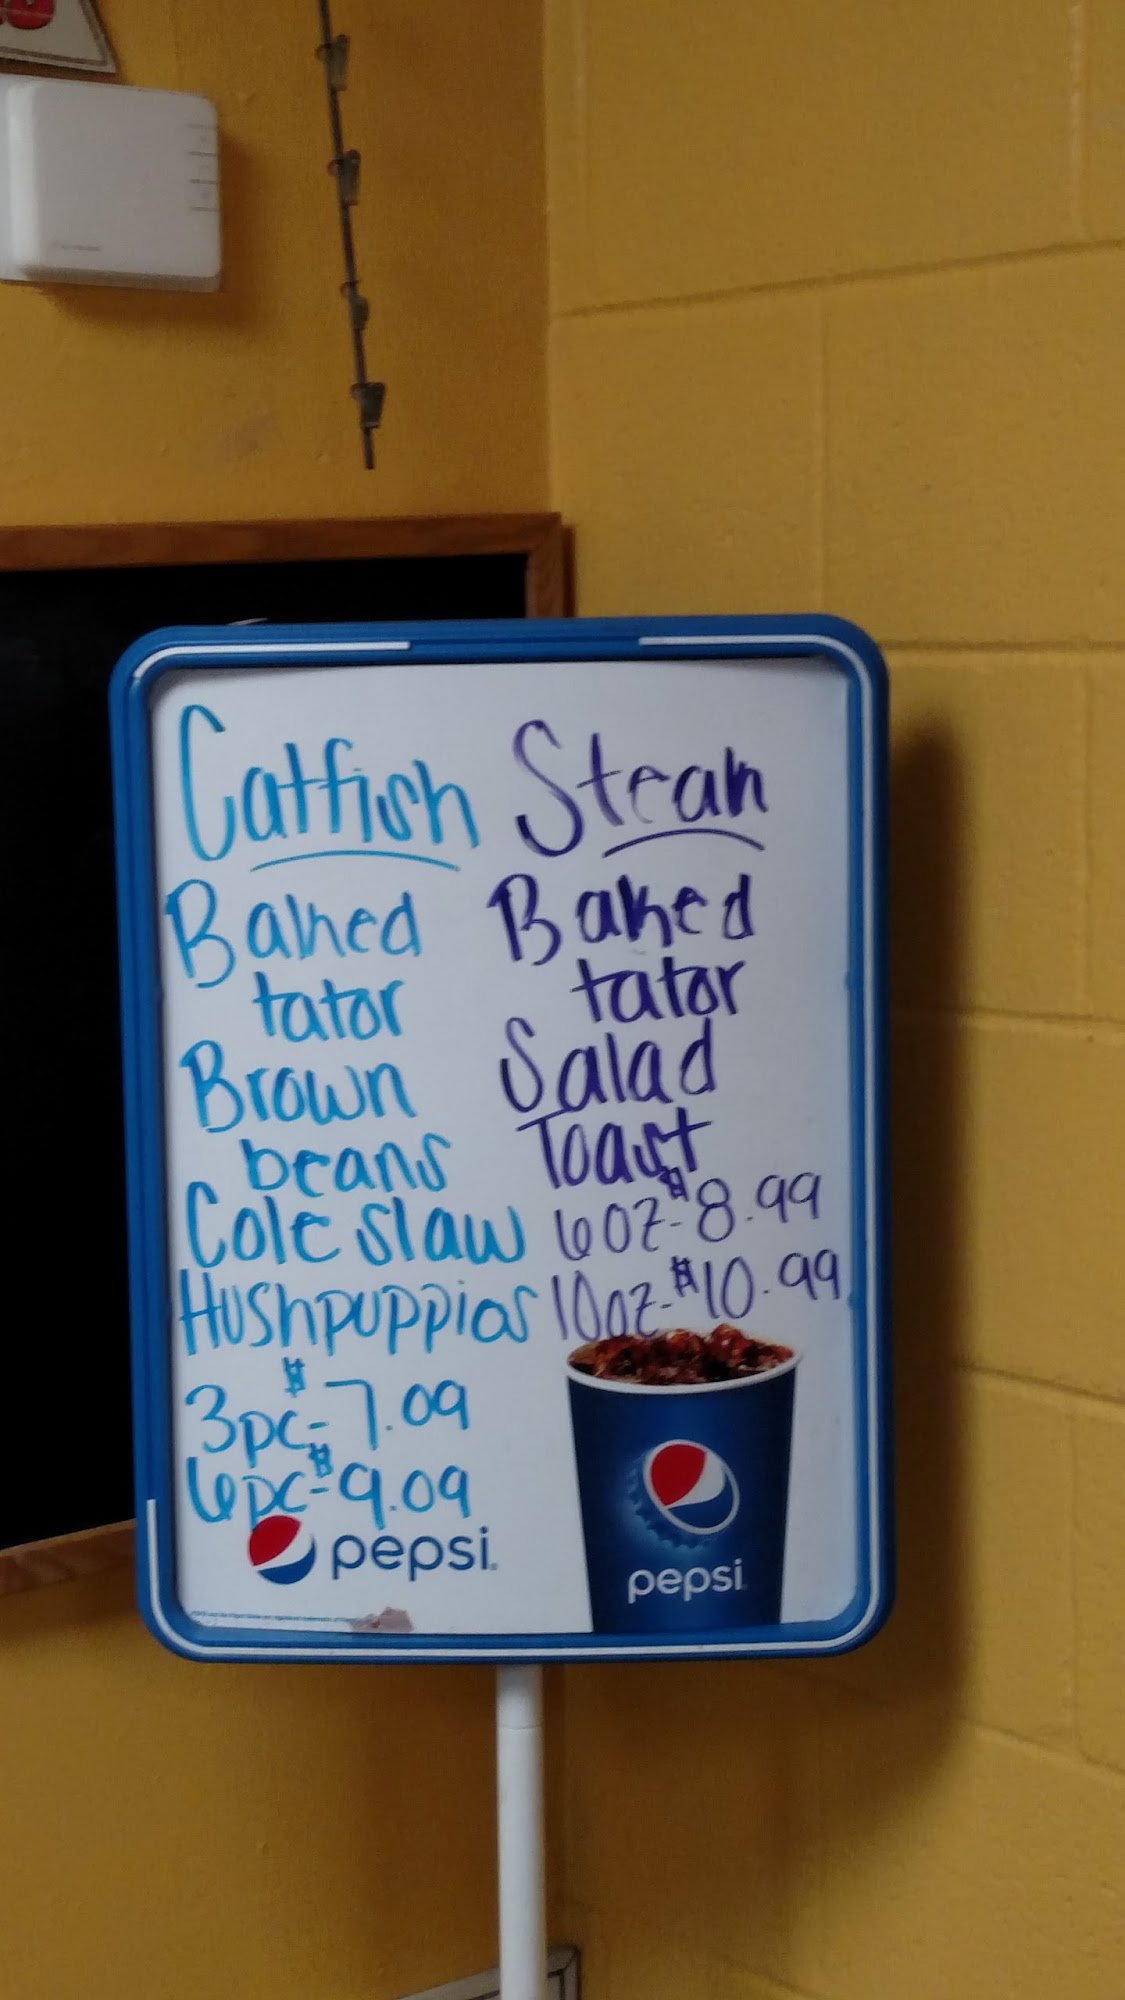 Catfish
Baked
tator
Brown
beans
Cole slaw
Hushpuppies
3pc-$7.09
6pc-$9.09
Steak
Baked
tator
Salad
Toast
6oz-$8.99
10oz-$10.99
pepsi
pepsi